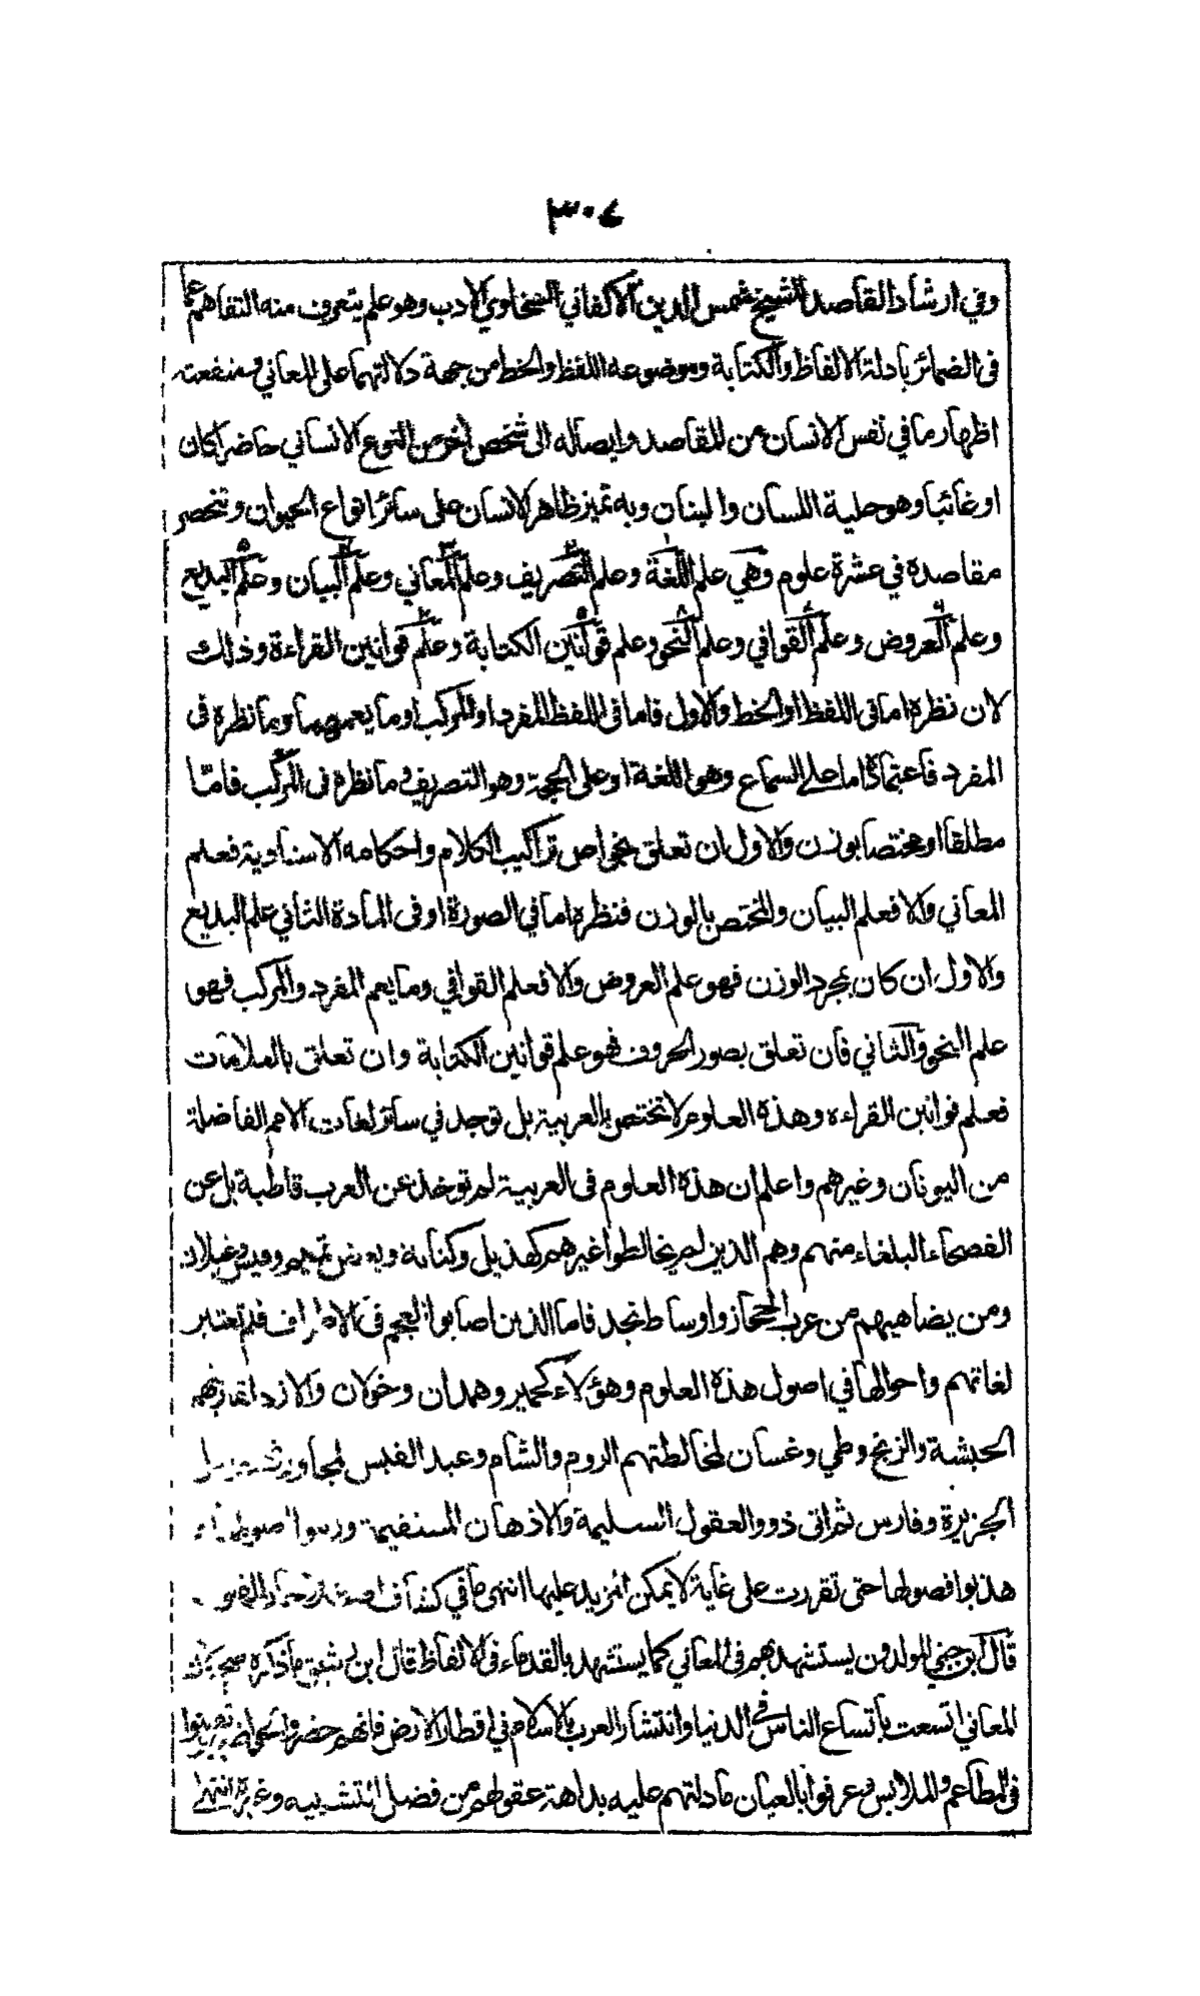 ٣٠٤
وفي ارشاد القاصد الشيخ شمس الدين الاكفاني السخاوي الادب وهو علم يتعرف منه التفاهم عما
فى الضمائر بادلة الالفاظ والكتابة وموضوعه اللفظ والخط من جهة دلالتهما على المعاني ومنفعته
اظهار ما في نفس الانسان من المقاصد وايصاله الى شخص اخر من النوع الانساني حاضرا كان
او غائبا وهو حلية اللسان والبنان وبه تميز ظاهر الانسان على سائر انواع الحيوان وتنحصر
مقاصده في عشرة علوم وهي علم اللغة وعلم التصريف وعلم المعاني وعلم البيان وعلم البديع
وعلم العروض وعلم القوافي وعلم النحو وعلم قوانين الكتابة وعلم قوانين القراءة وذلك
لان نظره اما فى اللفظ او الخط والاول فاما فى اللفظ المفرد او المركب او ما يعمهما وما نظره فى
المفرد فاعتماده اما على السماع وهو اللغة او على الحجة وهو التصريف وما نظره فى المركب فامّا
مطلقا او مختصا بوزن والاول ان تعلق بخواص تراكيب الكلام واحكامه الاسنادية فعلم
المعاني والا فعلم البيان والمختص بالوزن فنظره اما في الصورة او فى المادة الثاني علم البديع
والاول ان كان بمجرد الوزن فهو علم العروض والا فعلم القوافي وما يعم المفرد والمركب فهو
علم النحو والثاني فان تعلق بصور الحروف فهو علم قوانين الكتابة وان تعلق بالعلامات
فعلم قوانين القراءه وهذه العلوم لا تختص بالعربية بل توجد في سائر لغات الامم الفاضلة
من اليونان وغيرهم واعلم ان هذه العلوم فى العربية لم توخذ عن العرب قاطبة بل عن
الفصحاء البلغاء منهم وهم الذين لم يخالطوا غيرهم كهذيل وكنانة وبعض تميم وقيس غيلان
ومن يضاهيهم من عرب الحجاز واوساط نجد فاما الذين اصابوا العجم فى الاطراف فلم تعتبر
لغاتهم واحوالها في اصول هذه العلوم وهؤلاء كحمير وهمدان وخولان والازد لمقاربتهم
الحبشة والزنج وطي وغسان لمخالطتهم الروم والشام وعبد القيس لمجاورتهم
الجزيرة وفارس ثم اتى ذوو العقول السليمة والاذهان المستقيمة ورتبوا اصولها
هذبوا فصولها حتى تقررت على غاية لا يمكن المزيد عليها انتهى ما في كشاف
قال ابن جني المولدون يستشهد بهم فى المعاني كما يستشهد بالقدماء فى الالفاظ قال ابن رشيق ما ذكره صحيح لان
المعاني اتسعت باتساع الناس في الدنيا وانتشار العرب بالاسلام في اقطار الارض فانهم حضروا
فى المطاعم والملابس وعرفوا بالعيان ما دلتهم عليه بداهة عقولهم من فضل التشبيه وغيره انتهى